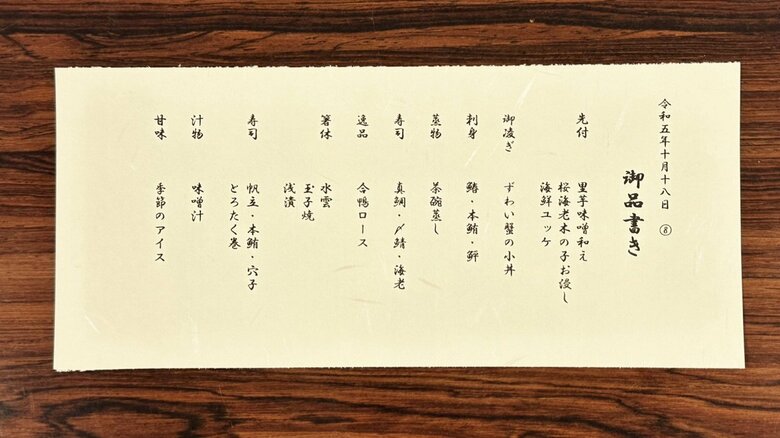 令和五年十月十八日 ⑧
御品書き
先付 里芋味噌和え
桜海老木の子お浸し
海鮮ユッケ
御凌ぎ ずわい蟹の小丼
刺身 鰆・本鮪・鮃
蒸物 茶碗蒸し
寿司 真鯛・〆鯖・海老
逸品 合鴨ロース
箸休 水雲
玉子焼
浅漬
寿司 帆立・本鮪・穴子
とろたく巻
汁物 味噌汁
甘味 季節のアイス